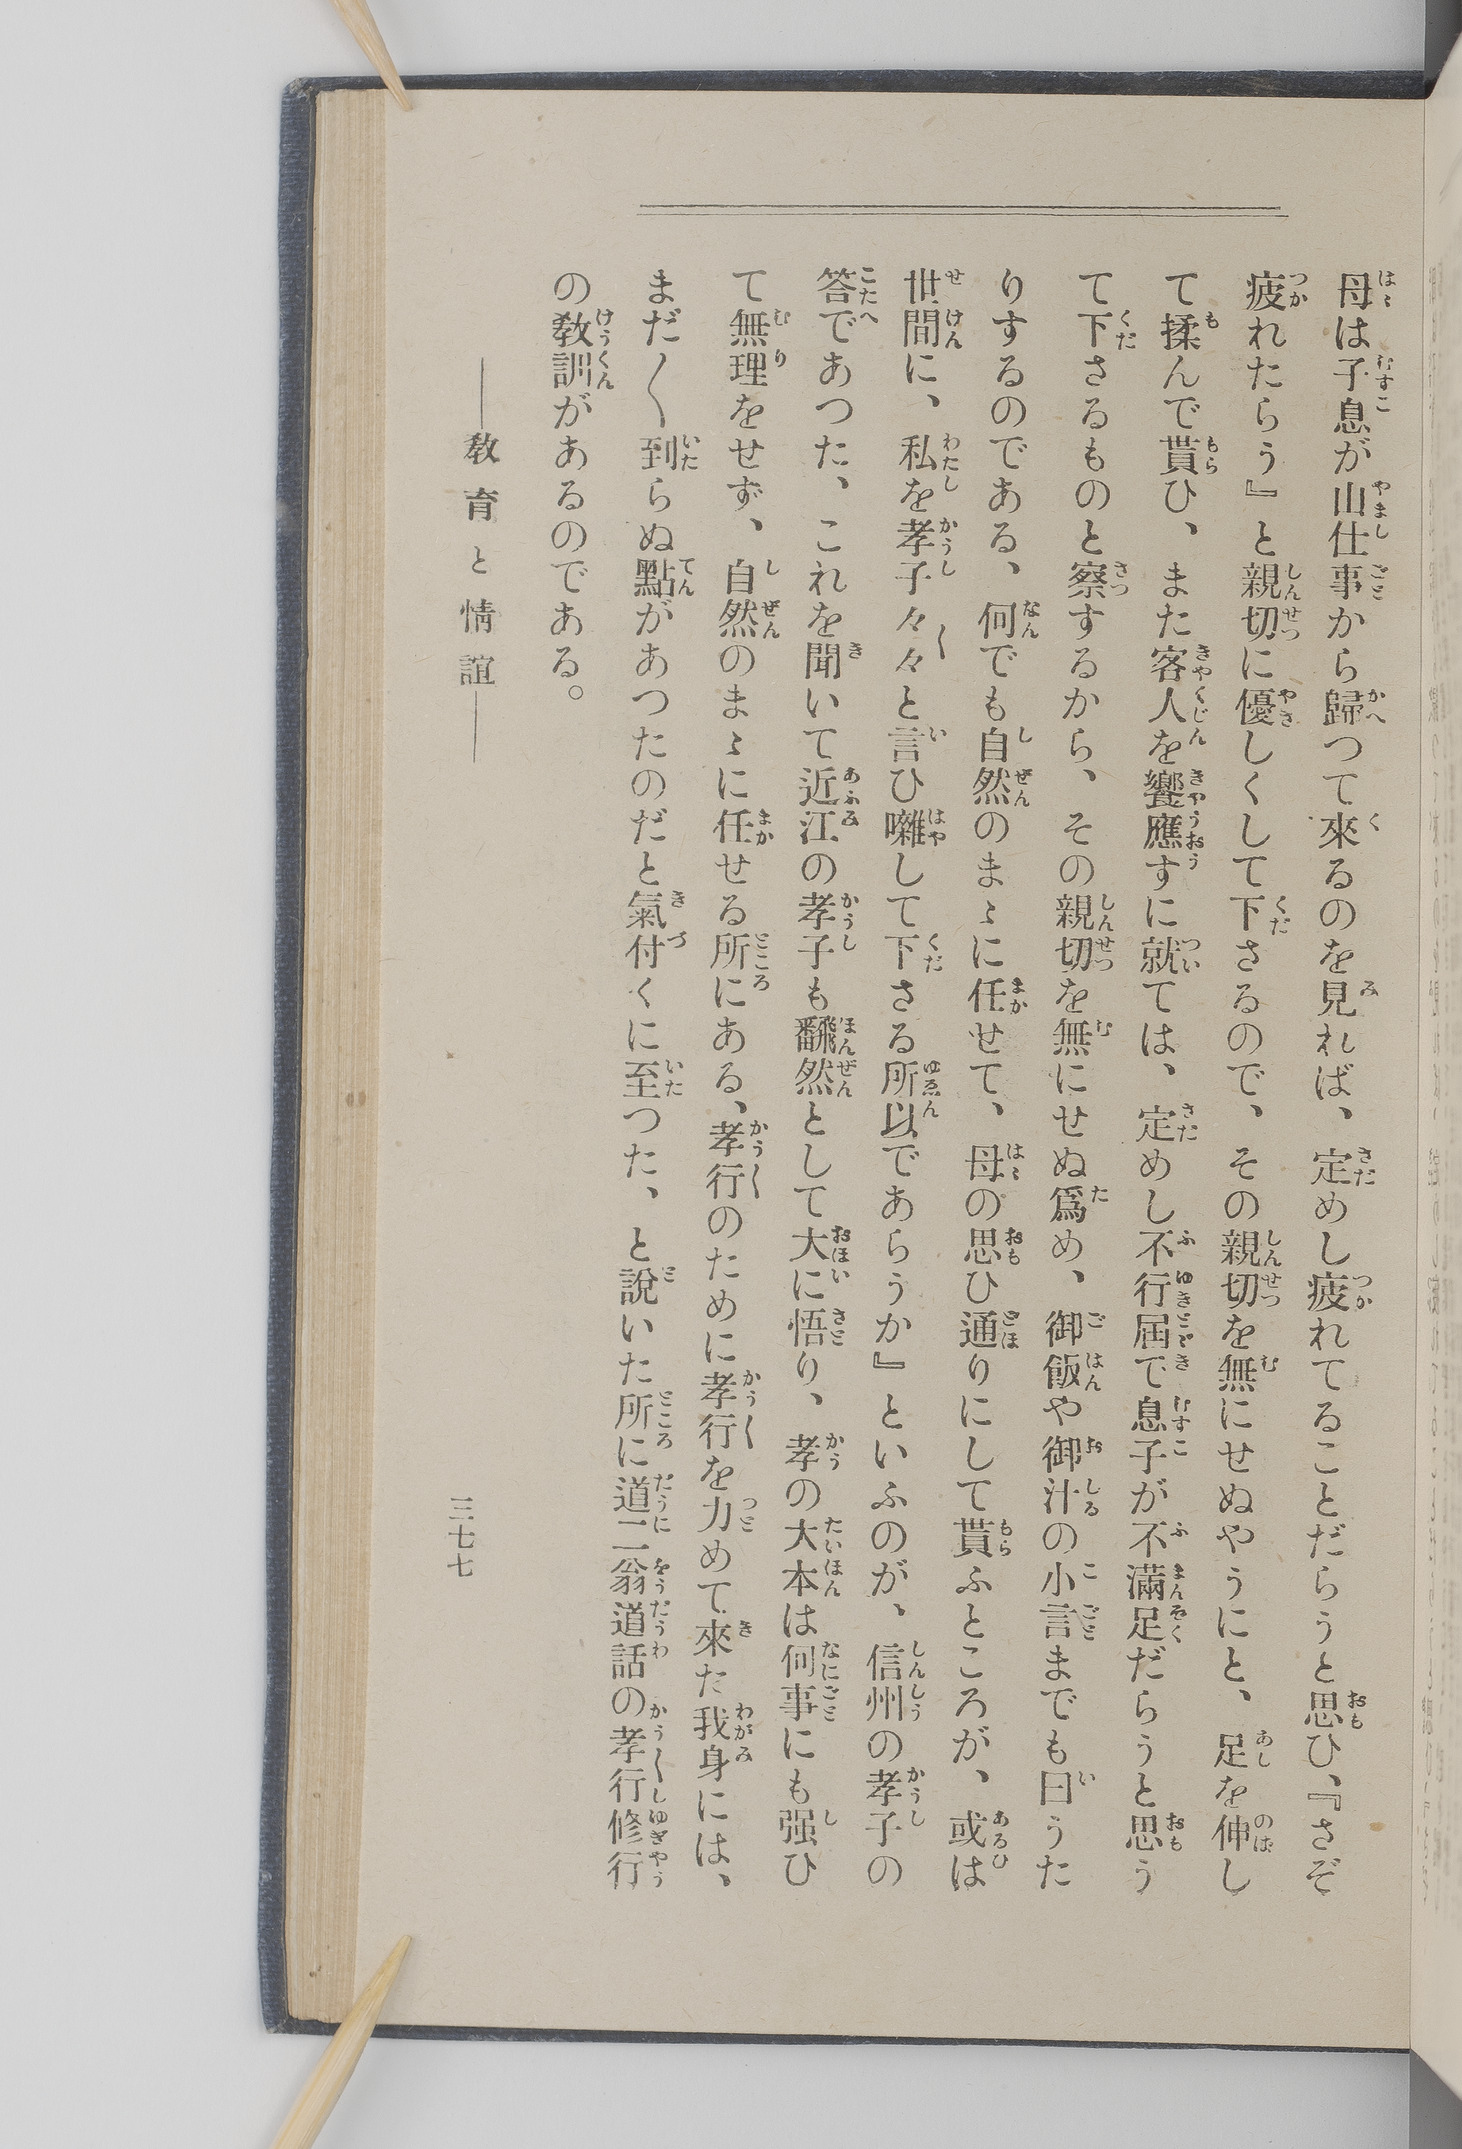 母は子息が山仕事から歸つて來るのを見れば、定めし疲れてることだらうと思ひ、『さぞ
疲れたらう』と親切に優しくして下さるので、その親切を無にせぬやうにと、足を伸し
て揉んで貰ひ、また客人を饗應すに就ては、定めし不行屆で息子が不滿足だらうと思う
て下さるものと察するから、その親切を無にせぬ爲め、御飯や御汁の小言までも曰うた
りするのである、何でも自然のまゝに任せて、母の思ひ通りにして貰ふところが、或は
世間に、私を孝子々々と言ひ囃して下さる所以であらうか』といふのが、信州の孝子の
答であつた、これを聞いて近江の孝子も飜然として大に悟り、孝の大本は何事にも强ひ
て無理をせず、自然のまゝに任せる所にある、孝行のために孝行を力めて來た我身には、
まだ〱到らぬ點があつたのだと氣付くに至つた、と說いた所に道二翁道話の孝行修行
の敎訓があるのである。
――敎育と情誼――
三七七